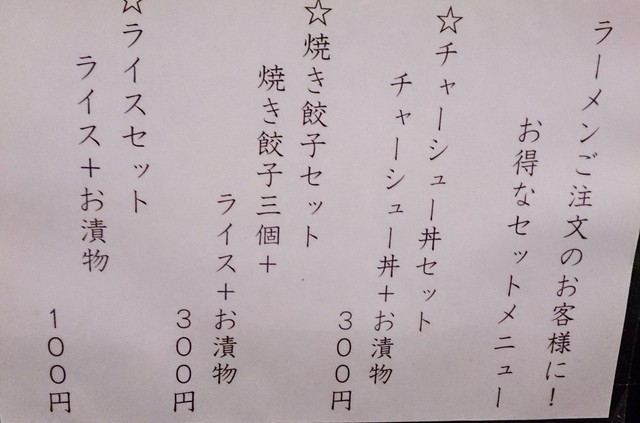 ラーメンご注文のお客様に!
お得なセットメニュー
☆チャーシュー丼セット
チャーシュー丼+お漬物
300円
☆焼き餃子セット
焼き餃子三個+
ライス+お漬物
300円
☆ライスセット
ライス+お漬物
100円